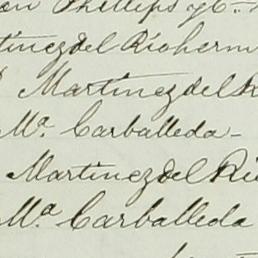 on Phillips y C.
tinez del Rio herm
Martinez del R
Mª. Carballeda -
Martinez del Ri
Mª Carballeda